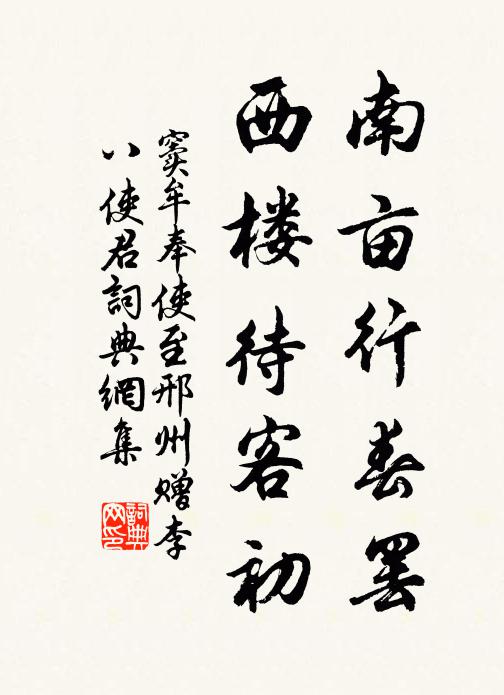 南亩行春罢
西楼待客初
窦牟奉使至邢州赠李
八使君詞典網集
詞典网印